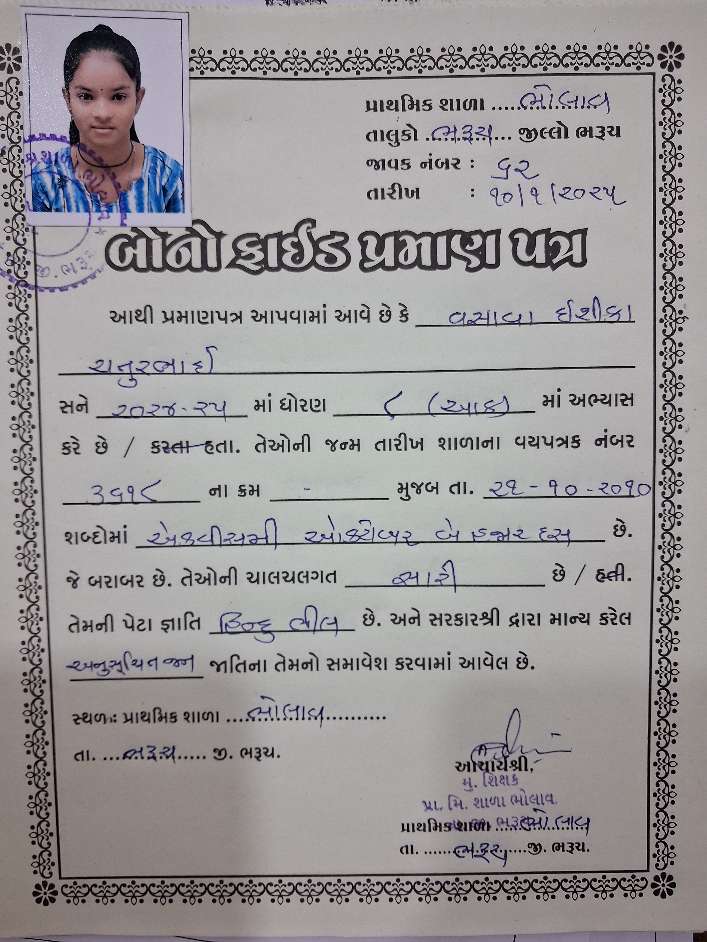 પ્રાથમિક શાળા .....ભોલાવ
તાલુકો .ભરૂચ... જીલ્લો ભરૂચ
જાવક નંબર : ૬૨
તારીખ : ૧૦/૧/૨૦૨૫
બોનોફાઈડ પ્રમાણ પત્ર
આથી પ્રમાણપત્ર આપવામાં આવે છે કે વસાવા ઈશીકા
ચતુરભાઈ
સને ૨૦૨૪-૨૫ માં ધોરણ ૮ (આઠ) માં અભ્યાસ
કરે છે / કરતા હતા. તેઓની જન્મ તારીખ શાળાના વયપત્રક નંબર
૩૬૧૮ ના ક્રમ - મુજબ તા. ૨૧-૧૦-૨૦૧૦
શબ્દોમાં એકવીસમી ઓક્ટોબર બે હજાર દસ છે.
જે બરાબર છે. તેઓની ચાલચલગત સારી છે / હતી.
તેમની પેટા જ્ઞાતિ હિન્દુ ભીલ છે. અને સરકારશ્રી દ્વારા માન્ય કરેલ
અનુસૂચિત જન જાતિના તેમનો સમાવેશ કરવામાં આવેલ છે.
સ્થળઃ પ્રાથમિક શાળા ....ભોલાવ..........
તા. ...ભરૂચ..... જી. ભરૂચ.
આચાર્યશ્રી,
મુ. શિક્ષક
પ્રા. મિ. શાળા ભોલાવ
પ્રાથમિક શાળા ભોલાવ
તા. .......ભરૂચ....જી. ભરૂચ.